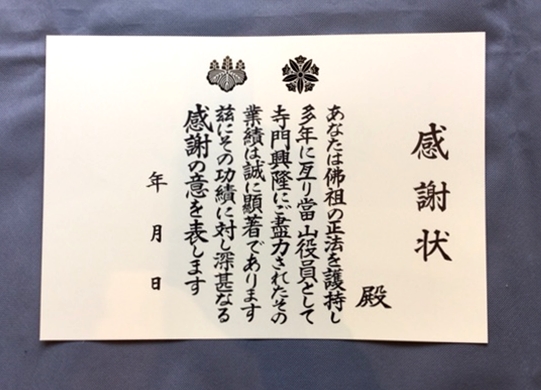 感謝状
殿
あなたは佛祖の正法を護持し
多年に亙り當山役員として
寺門興隆にご盡力されたその
業績は誠に顕著であります
茲にその功績に対し深甚なる
感謝の意を表します
年月日